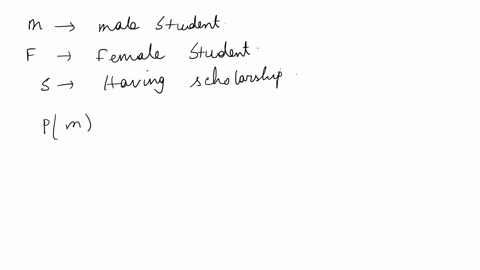 m → male Student.
F → Female Student.
S → Having scholarship.
P(m)